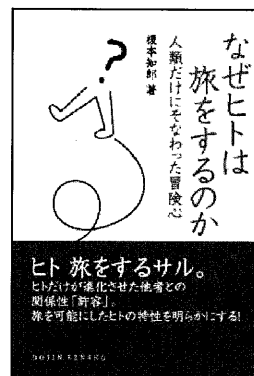 なぜヒトは
旅をするのか
人類だけにそなわった冒険心
榎本知郎 著
ヒト 旅をするサル。
ヒトだけが進化させた他者との
関係性「許容」。
旅を可能にしたヒトの特性を明らかにする!
DOJIN SENSHO